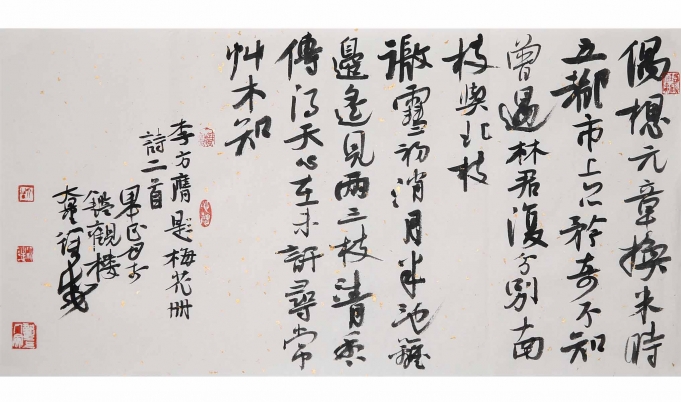 偶想元章换米時
五都市上只矜奇不知
曾遇林君復分别南
枝與北枝
微雪初消月半池籬
邊遥見兩三枝清香
傳得天心在未許尋常
艸木知
李方膺題梅花册
詩二首
鑑觀樓